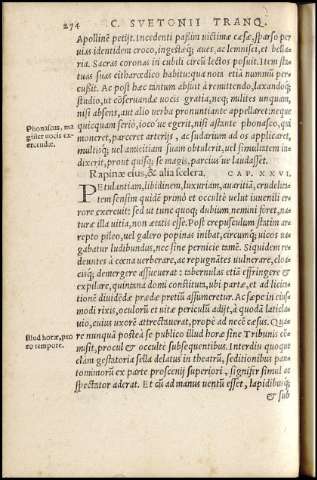 274 C. SVETONII TRANQ.
Apollinē petijt. Incedenti passim victimæ cæsæ, sparso per
vias identidem croco, ingestæq; aues, ac lemnisci, et bella-
ria. Sacras coronas in cubili circū lectos posuit. Item sta-
tuas suas citharœdico habitu: qua nota etiā nummū per-
cussit. Ac post hæc tantum abfuit à remittendo, laxandoq́;
studio, ut cōseruandæ uocis gratia, neq; milites unquam,
nisi absens, aut alio uerba pronuntiante appellaret: neque
Phonascus, ma
gister uocis ex-
ercendæ.
quicquam serio, ioco'ue egerit, nisi astante phonasco, qui
moneret, parceret arterijs, ac sudarium ad os applicaret,
multisq́; uel amicitiam suam obtulerit, uel simultatem in-
dixerit, prout quisq; se magis, parcius'ue laudasset.
Rapinæ eius, & alia scelera. CAP. XXVI.
PEtulantiam, libidinem, luxuriam, auaritiā, crudelita
tem sensim quidē primò et occultè uelut iuuenili er-
rore exercuit: sed ut tunc quoq; dubium nemini foret, na-
turæ illa uitia, non ætatis esse. Post crepusculum statim ar-
repto pileo, uel galero popinas inibat, circumq́; uicos ua-
gabatur ludibundus, nec sine pernicie tamē. Siquidem re-
deuntes à cœna uerberare, ac repugnātes uulnerare, cloa-
cisq́; demergere assuerat: tabernulas etiā effringere &
expilare, quintana domi constituta, ubi partæ, et ad licita-
tionē diuidēdæ prædæ pretiū assumeretur. Ac sæpe in eius-
modi rixis, oculorū et uitæ periculū adijt, à quodā laticla-
uio, cuius uxorē attrectauerat, propè ad necē cæsus. Qua
Illud horæ, pro
eo tempore.
re nunquā posteà se publico illud horæ sine Tribunis cō-
misit, procul & occultè subsequentibus. Interdiu quoque
clam gestatoria sella delatus in theatrū, seditionibus pan-
tomimorū ex parte proscenij superiori, signifer simul ac
spectator aderat. Et cū ad manus uentū esset, lapidibusq́;
& sub